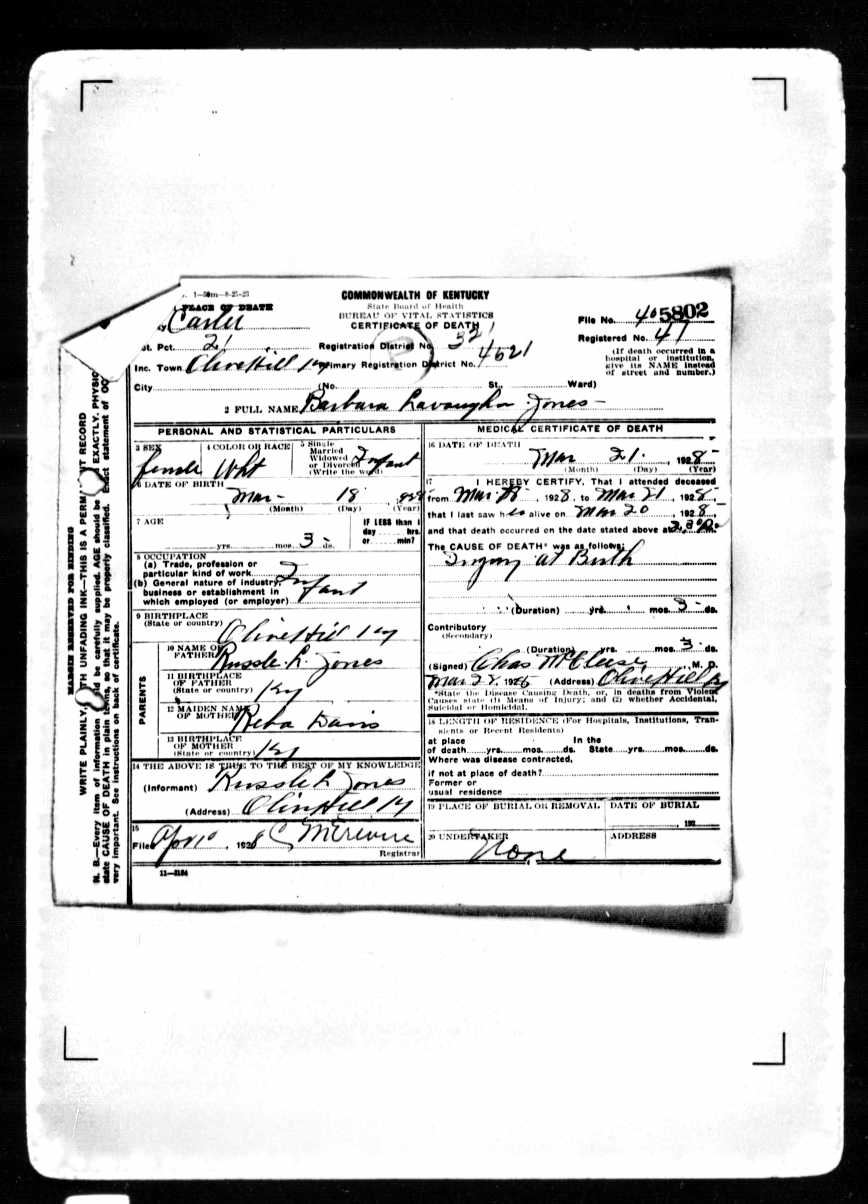 1—50m—8-25-25
PLACE OF DEATH
COMMONWEALTH OF KENTUCKY
State Board of Health
BUREAU OF VITAL STATISTICS
CERTIFICATE OF DEATH
File No. 5802
Registered No. 47
(If death occurred in a hospital or institution, give its NAME instead of street and number.)
Carter
Vot. Pct. 2
Registration District No. 321
Inc. Town Olive Hill Ky
Primary Registration District No. 4621
City (No. St., Ward)
2 FULL NAME Barbara Lavaughn Jones
PERSONAL AND STATISTICAL PARTICULARS
3 SEX
female
4 COLOR OR RACE
Wht
5 Single
Married
Widowed
or Divorced
(Write the word)
Infant
6 DATE OF BIRTH
Mar 18, 928
(Month) (Day) (Year)
7 AGE
yrs. mos. 3 ds.
IF LESS than 1
day hrs.
or min?
8 OCCUPATION
(a) Trade, profession or
particular kind of work
(b) General nature of industry,
business or establishment in
which employed (or employer)
Infant
9 BIRTHPLACE
(State or country)
Olive Hill Ky
PARENTS
10 NAME OF
FATHER Russle L. Jones
11 BIRTHPLACE
OF FATHER
(State or country) Ky
12 MAIDEN NAME
OF MOTHER Reba Davis
13 BIRTHPLACE
OF MOTHER
(State or country) Ky
14 THE ABOVE IS TRUE TO THE BEST OF MY KNOWLEDGE
(Informant) Russle L Jones
(Address) Olive Hill Ky
15
Filed Apr 10, 1928
Registrar
11—3184
MEDICAL CERTIFICATE OF DEATH
16 DATE OF DEATH
Mar 21, 1928
(Month) (Day) (Year)
17 I HEREBY CERTIFY, That I attended deceased
from Mar 18, 1928, to Mar 21, 1928,
that I last saw h alive on Mar 20, 1928,
and that death occurred on the date stated above at m.
The CAUSE OF DEATH* was as follows:
Injury at Birth
(Duration) yrs. mos. 3 ds.
Contributory
(Secondary)
(Duration) yrs. mos. 3 ds.
(Signed) Chas M. , M. D.
Mar , 192 (Address) Olive Hill Ky
*State the Disease Causing Death, or, in deaths from Violent
Causes state (1) Means of Injury; and (2) whether Accidental,
Suicidal or Homicidal.
18 LENGTH OF RESIDENCE (For Hospitals, Institutions, Transients or Recent Residents)
at place In the
of death yrs. mos. ds. State yrs. mos. ds.
Where was disease contracted,
if not at place of death?
Former or
usual residence
19 PLACE OF BURIAL OR REMOVAL
DATE OF BURIAL
, 192
20 UNDERTAKER
None
ADDRESS
MARGIN RESERVED FOR BINDING
WRITE PLAINLY, WITH UNFADING INK—THIS IS A PERMANENT RECORD
N. B.—Every item of information should be carefully supplied. AGE should be EXACTLY. PHYSIC
state CAUSE OF DEATH in plain terms, so that it may be properly classified. Exact statement of OC
very important. See instructions on back of certificate.